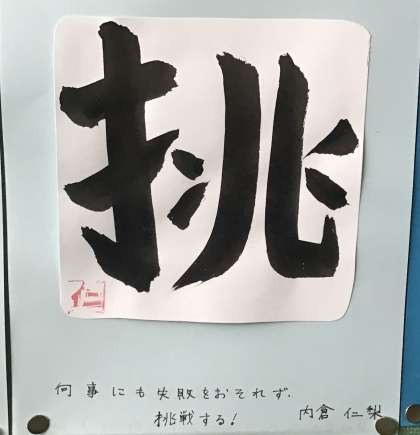 挑
仁
何事にも失敗をおそれず、
挑戦する！
内倉 仁梨